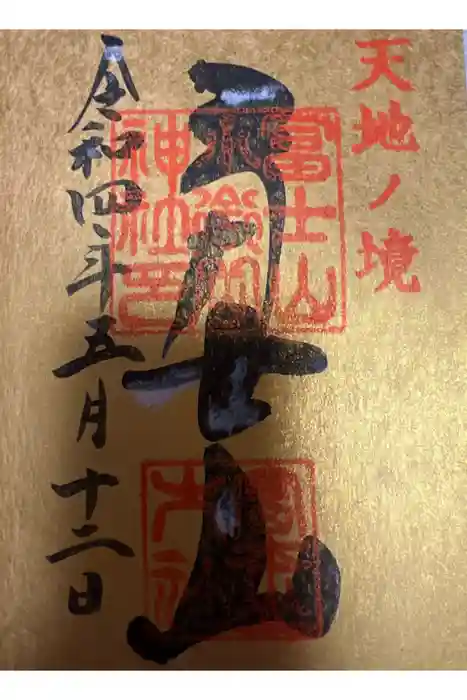 天地ノ境
富士山
小御嶽
神社印
冨士山
令和四年五月十二日